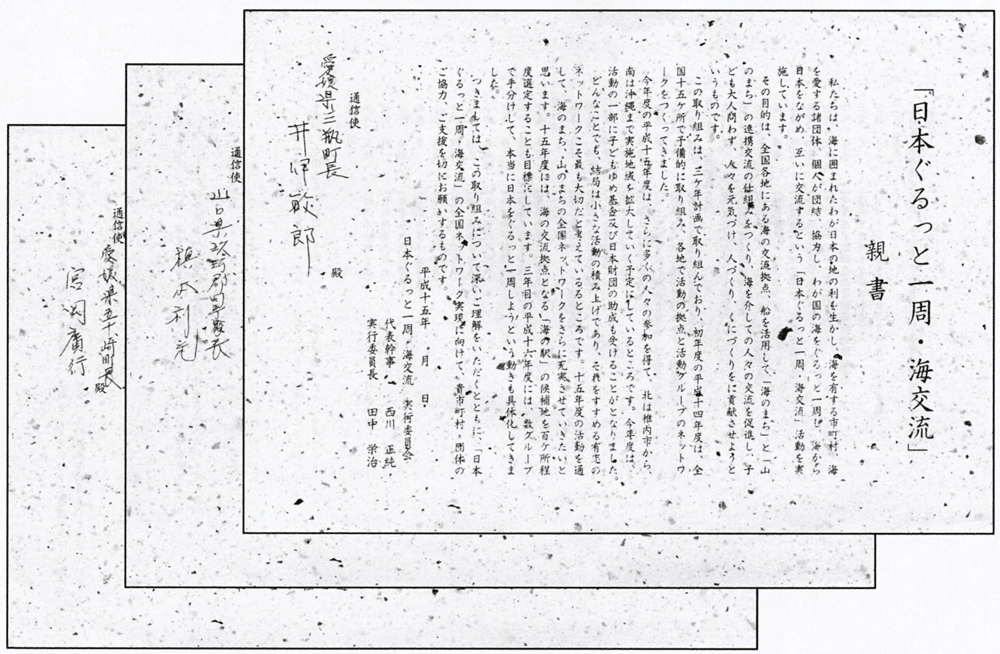 「日本ぐるっと一周・海交流」
親書
私たちは、海に囲まれたわが日本の地の利を生かし、海を有する市町村、海
を愛する諸団体、個人が団結、協力し、わが国の海をぐるっと一周し、海から
日本をながめ、互いに交流するという「日本ぐるっと一周・海交流」活動を実
施しています。
その目的は、全国各地にある海の交流拠点、船を活用して、「海のまち」と「山
のまち」の連携交流の仕組みをつくり、海を介しての人々の交流を促進し、子
ども大人問わず、人々を元気づけ、人づくり、くにづくりをに貢献させようと
いうものです。
この取り組みは、三ケ年計画で取り組んでおり、初年度の平成十四年度は、全
国十五ケ所で予備的に取り組み、各地で活動の拠点と活動グループのネットワ
ークをつくってきました。
今年度の平成十五年度は、さらに多くの人々の参加を得て、北は稚内市から、
南は沖縄まで実施地域を拡大していく予定にしているところです。今年度は、
活動の一部に子どもゆめ基金及び日本財団の助成も受けることがとなりました。
どんなことでも、結局は小さな活動の積み上げであり、それをすすめる有志の
ネットワークこそ最も大切だと考えているところです。十五年度の活動を通
して、海のまち、山のまちの全国ネットワークをさらに充実させていきたいと
思います。十五年度には、海の交流拠点となる「海の駅」の候補地を百ケ所程
度選定することも目標にしています。三年目の平成十六年度には、数グループ
で手分けして、本当に日本をぐるっと一周しようという動きも具体化してきま
した。
つきましては、この取り組みについて深いご理解をいただくとともに、「日本
ぐるっと一周・海交流」の全国ネットワーク実現に向けて、貴市町村・団体の
ご協力、ご支援を切にお願いするものです。
平成十五年 月 日
日本ぐるっと一周・海交流 実行委員会
代表幹事 西川 正純
実行委員長 田中 栄治
通信使
愛媛県三瓶町長
井伊敏郎 殿
通信使
山口県玖珂郡由宇町長
槙本利光 殿
通信使
愛媛県五十崎町長
宮岡廣行 殿